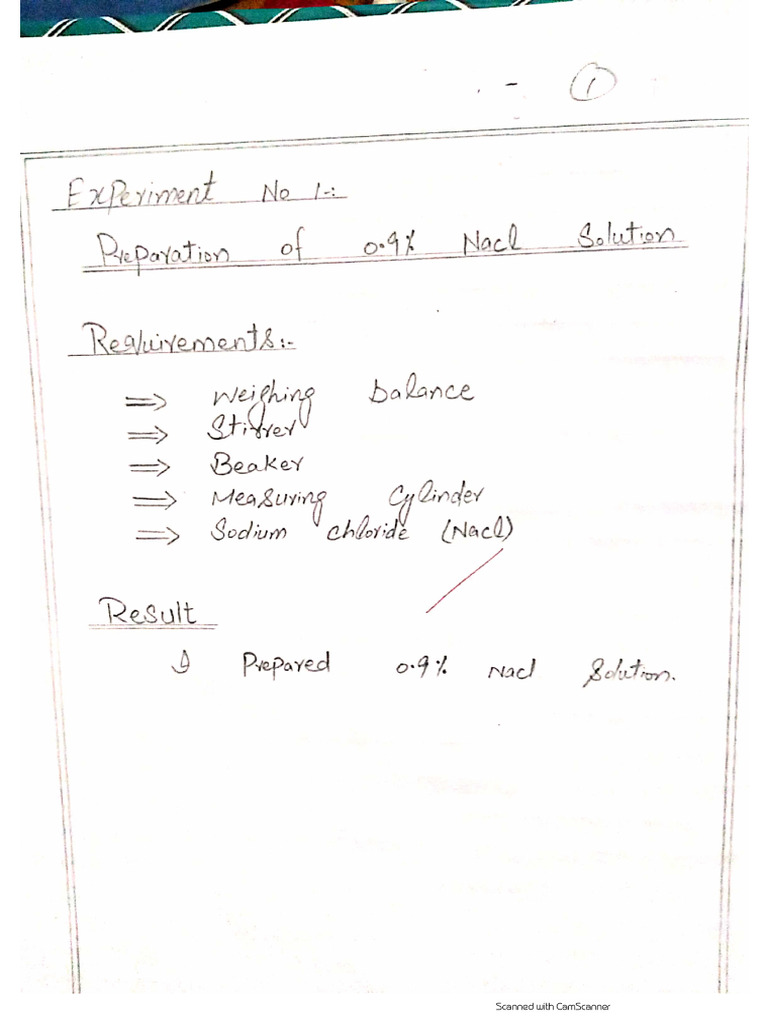 ①
Experiment No 1-:
Preparation of 0.9% Nacl Solution
Requirements:-
⇒ Weighing balance
⇒ Stirrer
⇒ Beaker
⇒ Measuring Cylinder
⇒ Sodium chloride (Nacl)
Result
I Prepared 0.9% Nacl Solution.
Scanned with CamScanner